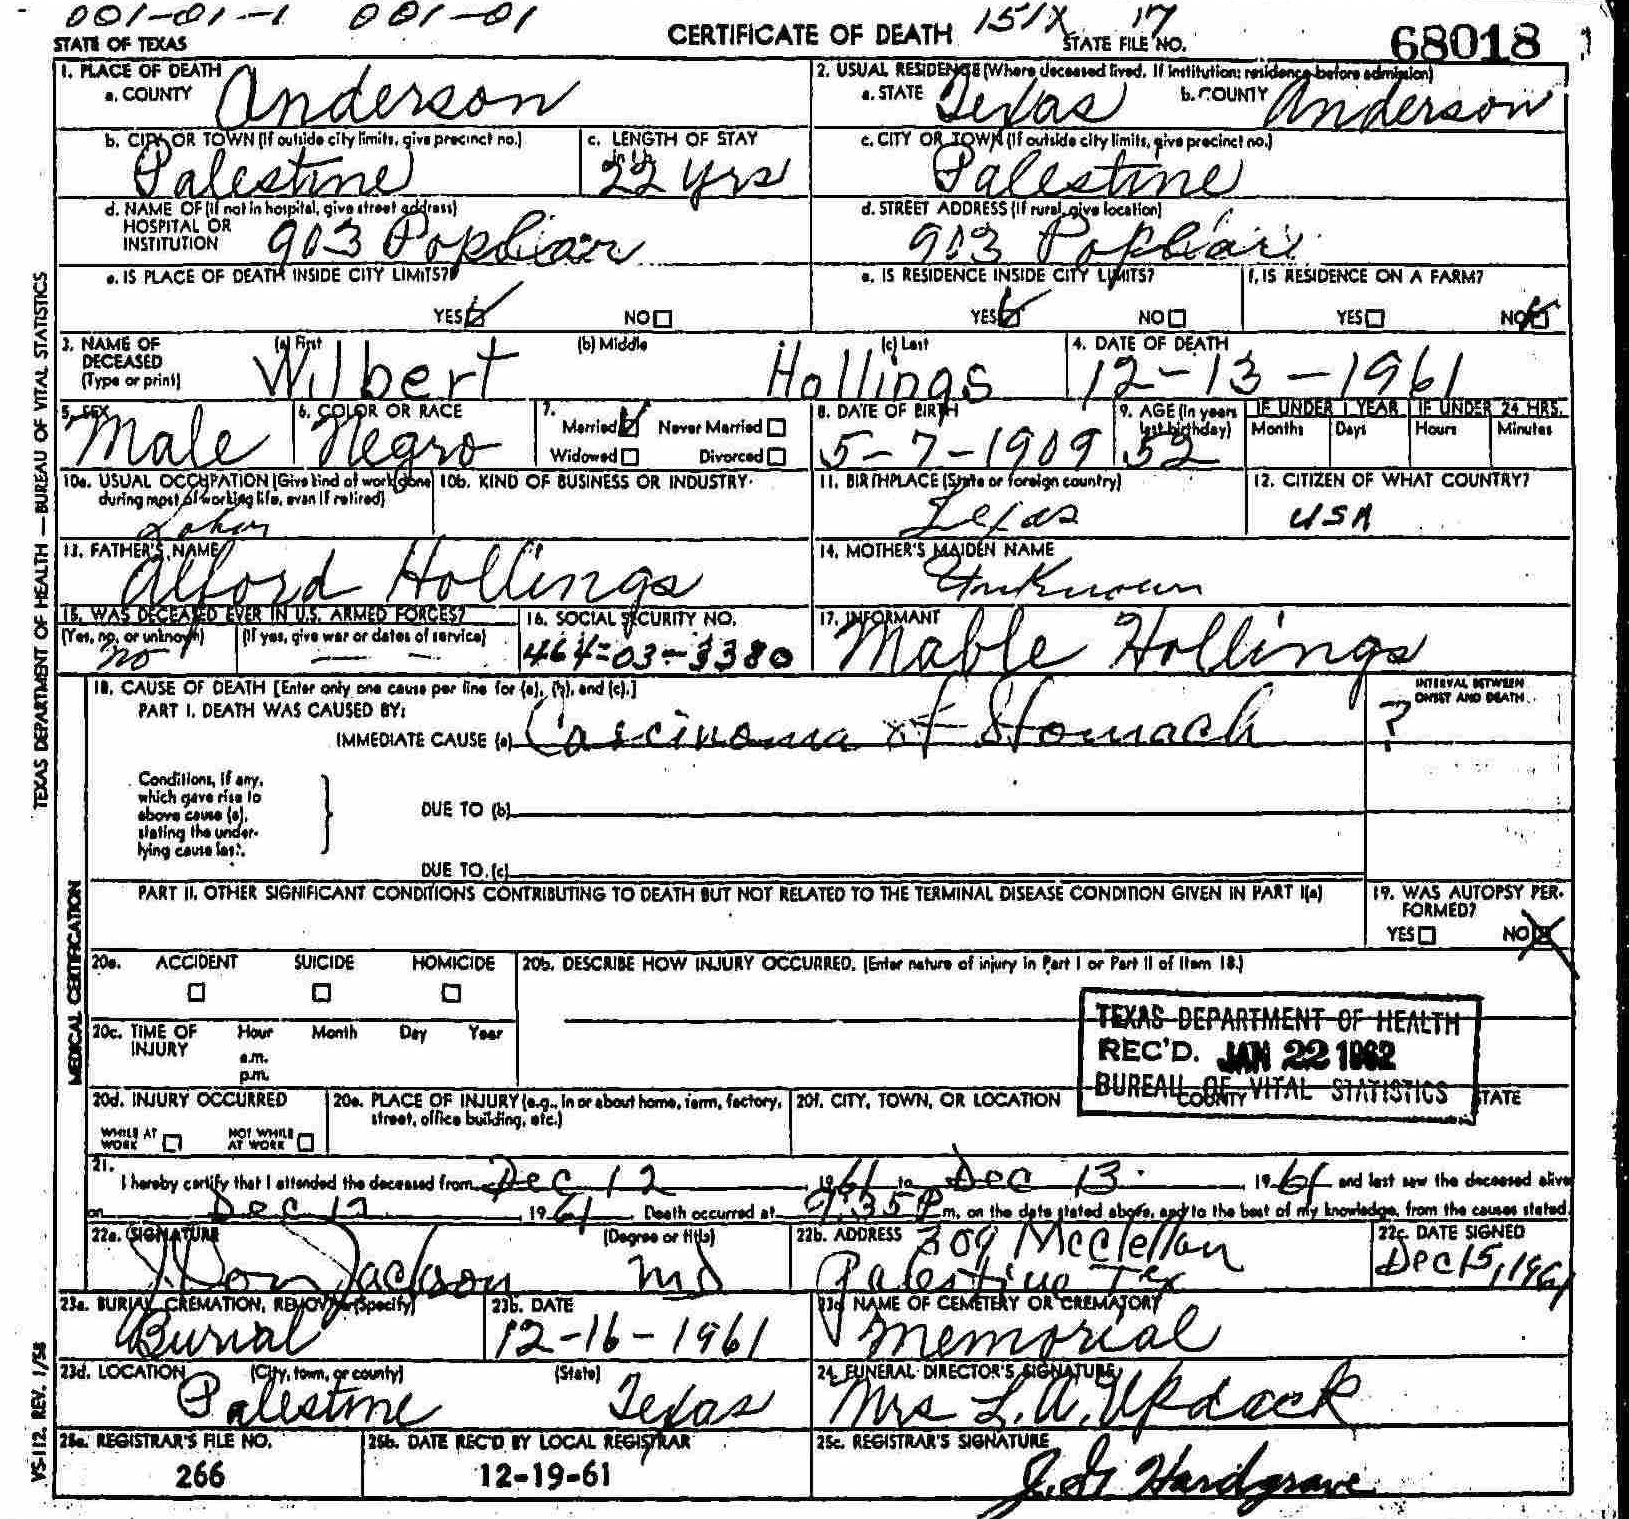 001-01-1 001-01 151X 17
STATE OF TEXAS CERTIFICATE OF DEATH STATE FILE NO. 68018
1. PLACE OF DEATH
a. COUNTY Anderson
2. USUAL RESIDENCE (Where deceased lived. If institution: residence before admission)
a. STATE Texas b. COUNTY Anderson
b. CITY OR TOWN (If outside city limits, give precinct no.) Palestine
c. LENGTH OF STAY
22 yrs
c. CITY OR TOWN (If outside city limits, give precinct no.)
Palestine
d. NAME OF (If not in hospital, give street address)
HOSPITAL OR
INSTITUTION 903 Poplar
d. STREET ADDRESS (If rural, give location)
903 Poplar
e. IS PLACE OF DEATH INSIDE CITY LIMITS?
YES NO
e. IS RESIDENCE INSIDE CITY LIMITS?
YES NO
f. IS RESIDENCE ON A FARM?
YES NO
3. NAME OF DECEASED (Type or print)
(a) First (b) Middle (c) Last
Wilbert Hollings
4. DATE OF DEATH
12-13-1961
5. SEX
Male
6. COLOR OR RACE
Negro
7.
Married Never Married
Widowed Divorced
8. DATE OF BIRTH
5-7-1909
9. AGE (In years last birthday)
52
IF UNDER 1 YEAR
Months Days
IF UNDER 24 HRS.
Hours Minutes
10a. USUAL OCCUPATION (Give kind of work done
during most of working life, even if retired)
10b. KIND OF BUSINESS OR INDUSTRY
11. BIRTHPLACE (State or foreign country)
Texas
12. CITIZEN OF WHAT COUNTRY?
USA
13. FATHER'S NAME
Alford Hollings
14. MOTHER'S MAIDEN NAME
Unknown
15. WAS DECEASED EVER IN U.S. ARMED FORCES?
(Yes, no, or unknown) (If yes, give war or dates of service)
no — —
16. SOCIAL SECURITY NO.
464-03-3380
17. INFORMANT
Mable Hollings
18. CAUSE OF DEATH [Enter only one cause per line for (a), (b), and (c).]
PART I. DEATH WAS CAUSED BY:
IMMEDIATE CAUSE (a) Carcinoma of Stomach
INTERVAL BETWEEN
ONSET AND DEATH
?
Conditions, if any,
which gave rise to
above cause (a),
stating the under-
lying cause last.
DUE TO (b)
DUE TO (c)
PART II. OTHER SIGNIFICANT CONDITIONS CONTRIBUTING TO DEATH BUT NOT RELATED TO THE TERMINAL DISEASE CONDITION GIVEN IN PART I(a)
19. WAS AUTOPSY PER-
FORMED?
YES NO
20a. ACCIDENT SUICIDE HOMICIDE
20b. DESCRIBE HOW INJURY OCCURRED. (Enter nature of injury in Part I or Part II of Item 18.)
20c. TIME OF INJURY
Hour Month Day Year
a.m.
p.m.
TEXAS DEPARTMENT OF HEALTH
REC'D. JAN 22 1962
BUREAU OF VITAL STATISTICS
20d. INJURY OCCURRED
WHILE AT WORK NOT WHILE AT WORK
20e. PLACE OF INJURY (e.g., in or about home, farm, factory,
street, office building, etc.)
20f. CITY, TOWN, OR LOCATION COUNTY STATE
21.
I hereby certify that I attended the deceased from Dec 12, 1961 to Dec 13, 1961 and last saw the deceased alive
on Dec 12 1961. Death occurred at 9:35 P m. on the date stated above, and to the best of my knowledge, from the causes stated.
22a. SIGNATURE (Degree or title)
Don Jackson MD
22b. ADDRESS 309 McClellan
Palestine Tex
22c. DATE SIGNED
Dec 15, 1961
23a. BURIAL, CREMATION, REMOVAL (Specify)
Burial
23b. DATE
12-16-1961
23c. NAME OF CEMETERY OR CREMATORY
Memorial
23d. LOCATION (City, town, or county) (State)
Palestine Texas
24. FUNERAL DIRECTOR'S SIGNATURE
Mrs L. A. Updock
25a. REGISTRAR'S FILE NO.
266
25b. DATE REC'D BY LOCAL REGISTRAR
12-19-61
25c. REGISTRAR'S SIGNATURE
Hardgrave
TEXAS DEPARTMENT OF HEALTH — BUREAU OF VITAL STATISTICS
MEDICAL CERTIFICATION
VS-112. REV. 1/58